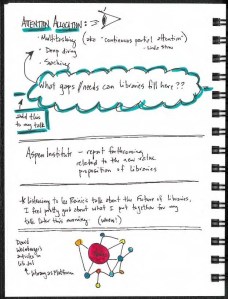 ATTENTION ALLOCATION:
- Multitasking (aka - "continuous partial attention"
- Deep diving
- Linda Stone
- Searching
What gaps/needs can Libraries fill here??
add this
to my talk
Aspen Institute - report forthcoming
related to the new value
proposition of libraries
* Listening to Lee Rainie talk about the Future of Libraries,
I feel pretty good about what I put together for my
talk later this morning. (whew!)
David
Weinberger's
articles in
Lib Jnl
Library as Platform